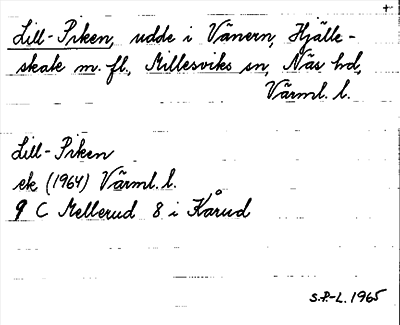 Lill-Piken, udde i Vänern, Hjälle-
skate m. fl., Millesviks sn, Näs hd,
Värml. l.
Lill-Piken
ek (1964) Värml. l.
9 C Mellerud 8 i Kårud
S.P-L. 1965